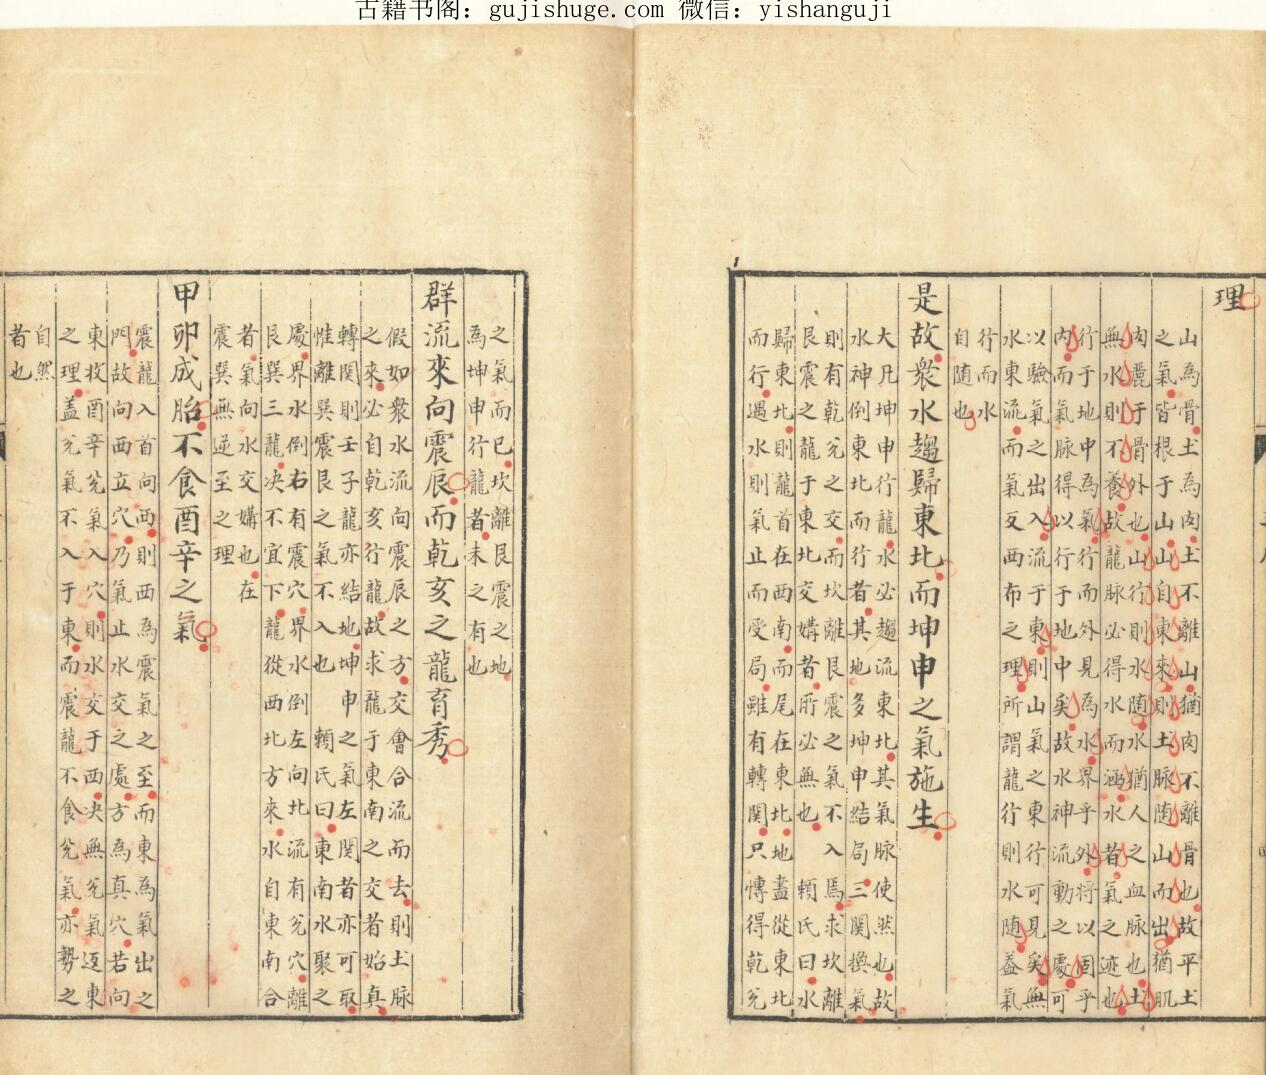 古籍书阁：gujishuge.com 微信：yishanguji
理
山為骨土為肉土不離山猶肉不離骨也故平土
之氣皆根于山山自東來則土脉随山而出猶肌
肉麗于骨外也山行則水随水猶人之血脉也土
無水則不養故龍脉必得水而涵水者氣之迹也
行于地中為氣行而外見為水界乎外将以固乎
内而氣脉得以行于地中矣故水神流動之處可
以驗氣之出入流于東則山氣之東行可見矣無
水東流而氣反西布之理所謂龍行則水随葢氣
行而水
自随也
是故衆水趨歸東北而坤申之氣施生
大凡坤申行龍水必趨流東北其氣脉使然也故
水神倒東北而行者其地多坤申結局三関換氣
則有乾兊之交而坎離艮震之氣不入焉求坎離
艮震之龍于東北交媾者所必無也頼氏曰水
歸東北則龍首在西南而尾在東北地盡從東北
而行遇水則氣止而受局雖有轉関只慱得乾兊
之氣而已坎離艮震之地
為坤申行龍者未之有也
群流來向震辰而乾亥之龍育秀
假如衆水流向震辰之方交會合流而去則土脉
之來必自乾亥行龍故求龍于東南之交者始真
轉関則壬子龍亦結地坤申之氣左関者亦可取
惟離巽震艮之氣不入也頼氏曰東南水聚之
處界水倒右有震穴界水倒左向北流有兊穴離
艮巽三龍决不宜下龍從西北方來水自東南合
者氣向水交媾也在
震巽無逆至之理
甲卯成胎不食酉辛之氣
震龍入首向西則西為震氣之至而東為氣出之
門故向西立穴乃氣止水交之處方為真穴若向
東收酉辛兊氣入穴則水交于西决無兊氣逆東
之理葢兊氣不入于東而震龍不食兊氣亦勢之
自然
者也